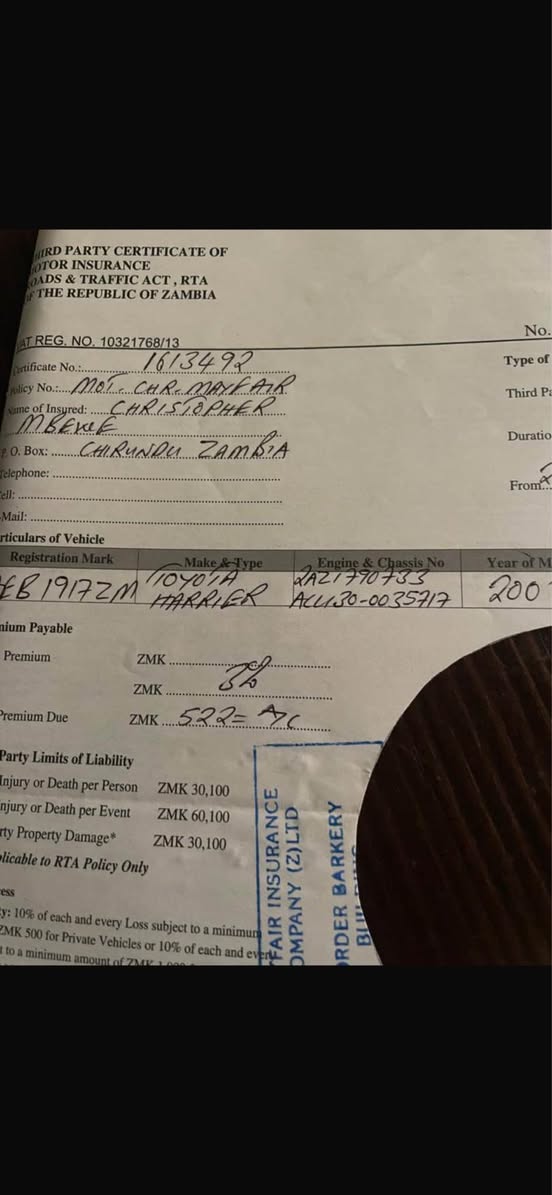 HIRD PARTY CERTIFICATE OF
OTOR INSURANCE
OADS & TRAFFIC ACT , RTA
F THE REPUBLIC OF ZAMBIA
AT REG. NO. 10321768/13
No.
ertificate No.: 1613492
Type of
olicy No.: MOT. CHR. MAYFAIR
Third Pa
ame of Insured: CHRISTOPHER
Duratio
P. O. Box: CHIRUNDU ZAMBIA
Telephone:
From
ell:
-Mail:
rticulars of Vehicle
Registration Mark Make & Type Engine & Chassis No Year of M
1917ZM TOYOTA 2AZ1790733 200
HARRIER ACU30-0035717
mium Payable
Premium ZMK
ZMK
Premium Due ZMK 522=
Party Limits of Liability
Injury or Death per Person ZMK 30,100
njury or Death per Event ZMK 60,100
rty Property Damage* ZMK 30,100
plicable to RTA Policy Only
ess
y: 10% of each and every Loss subject to a minimum
ZMK 500 for Private Vehicles or 10% of each and every
t to a minimum amount of ZMK
FAIR INSURANCE
OMPANY (Z)LTD
ORDER BARKERY